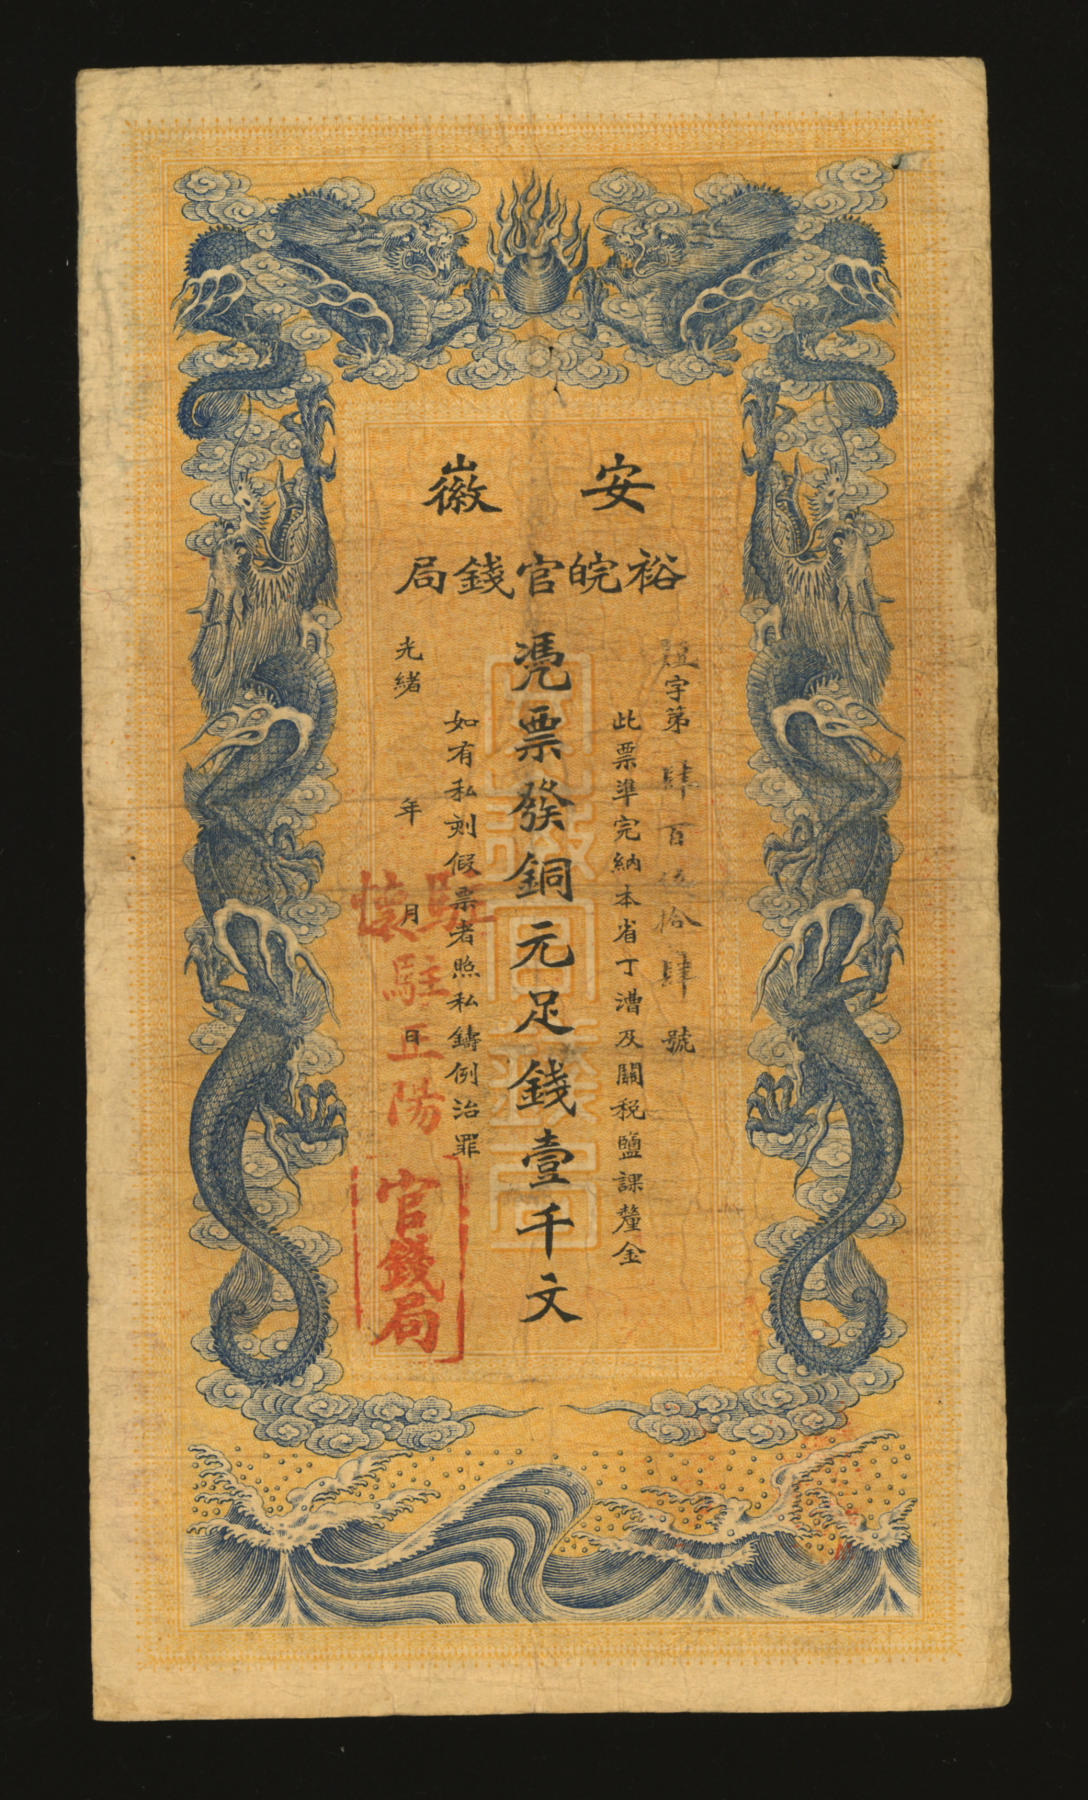 安徽
裕皖官錢局
字第肆百伍拾肆號
此票準完納本省丁漕及關稅鹽課釐金
憑票發銅元足錢壹千文
如有私刻假票者照私鑄例治罪
光緒年月日
駐
駐正陽
官錢局